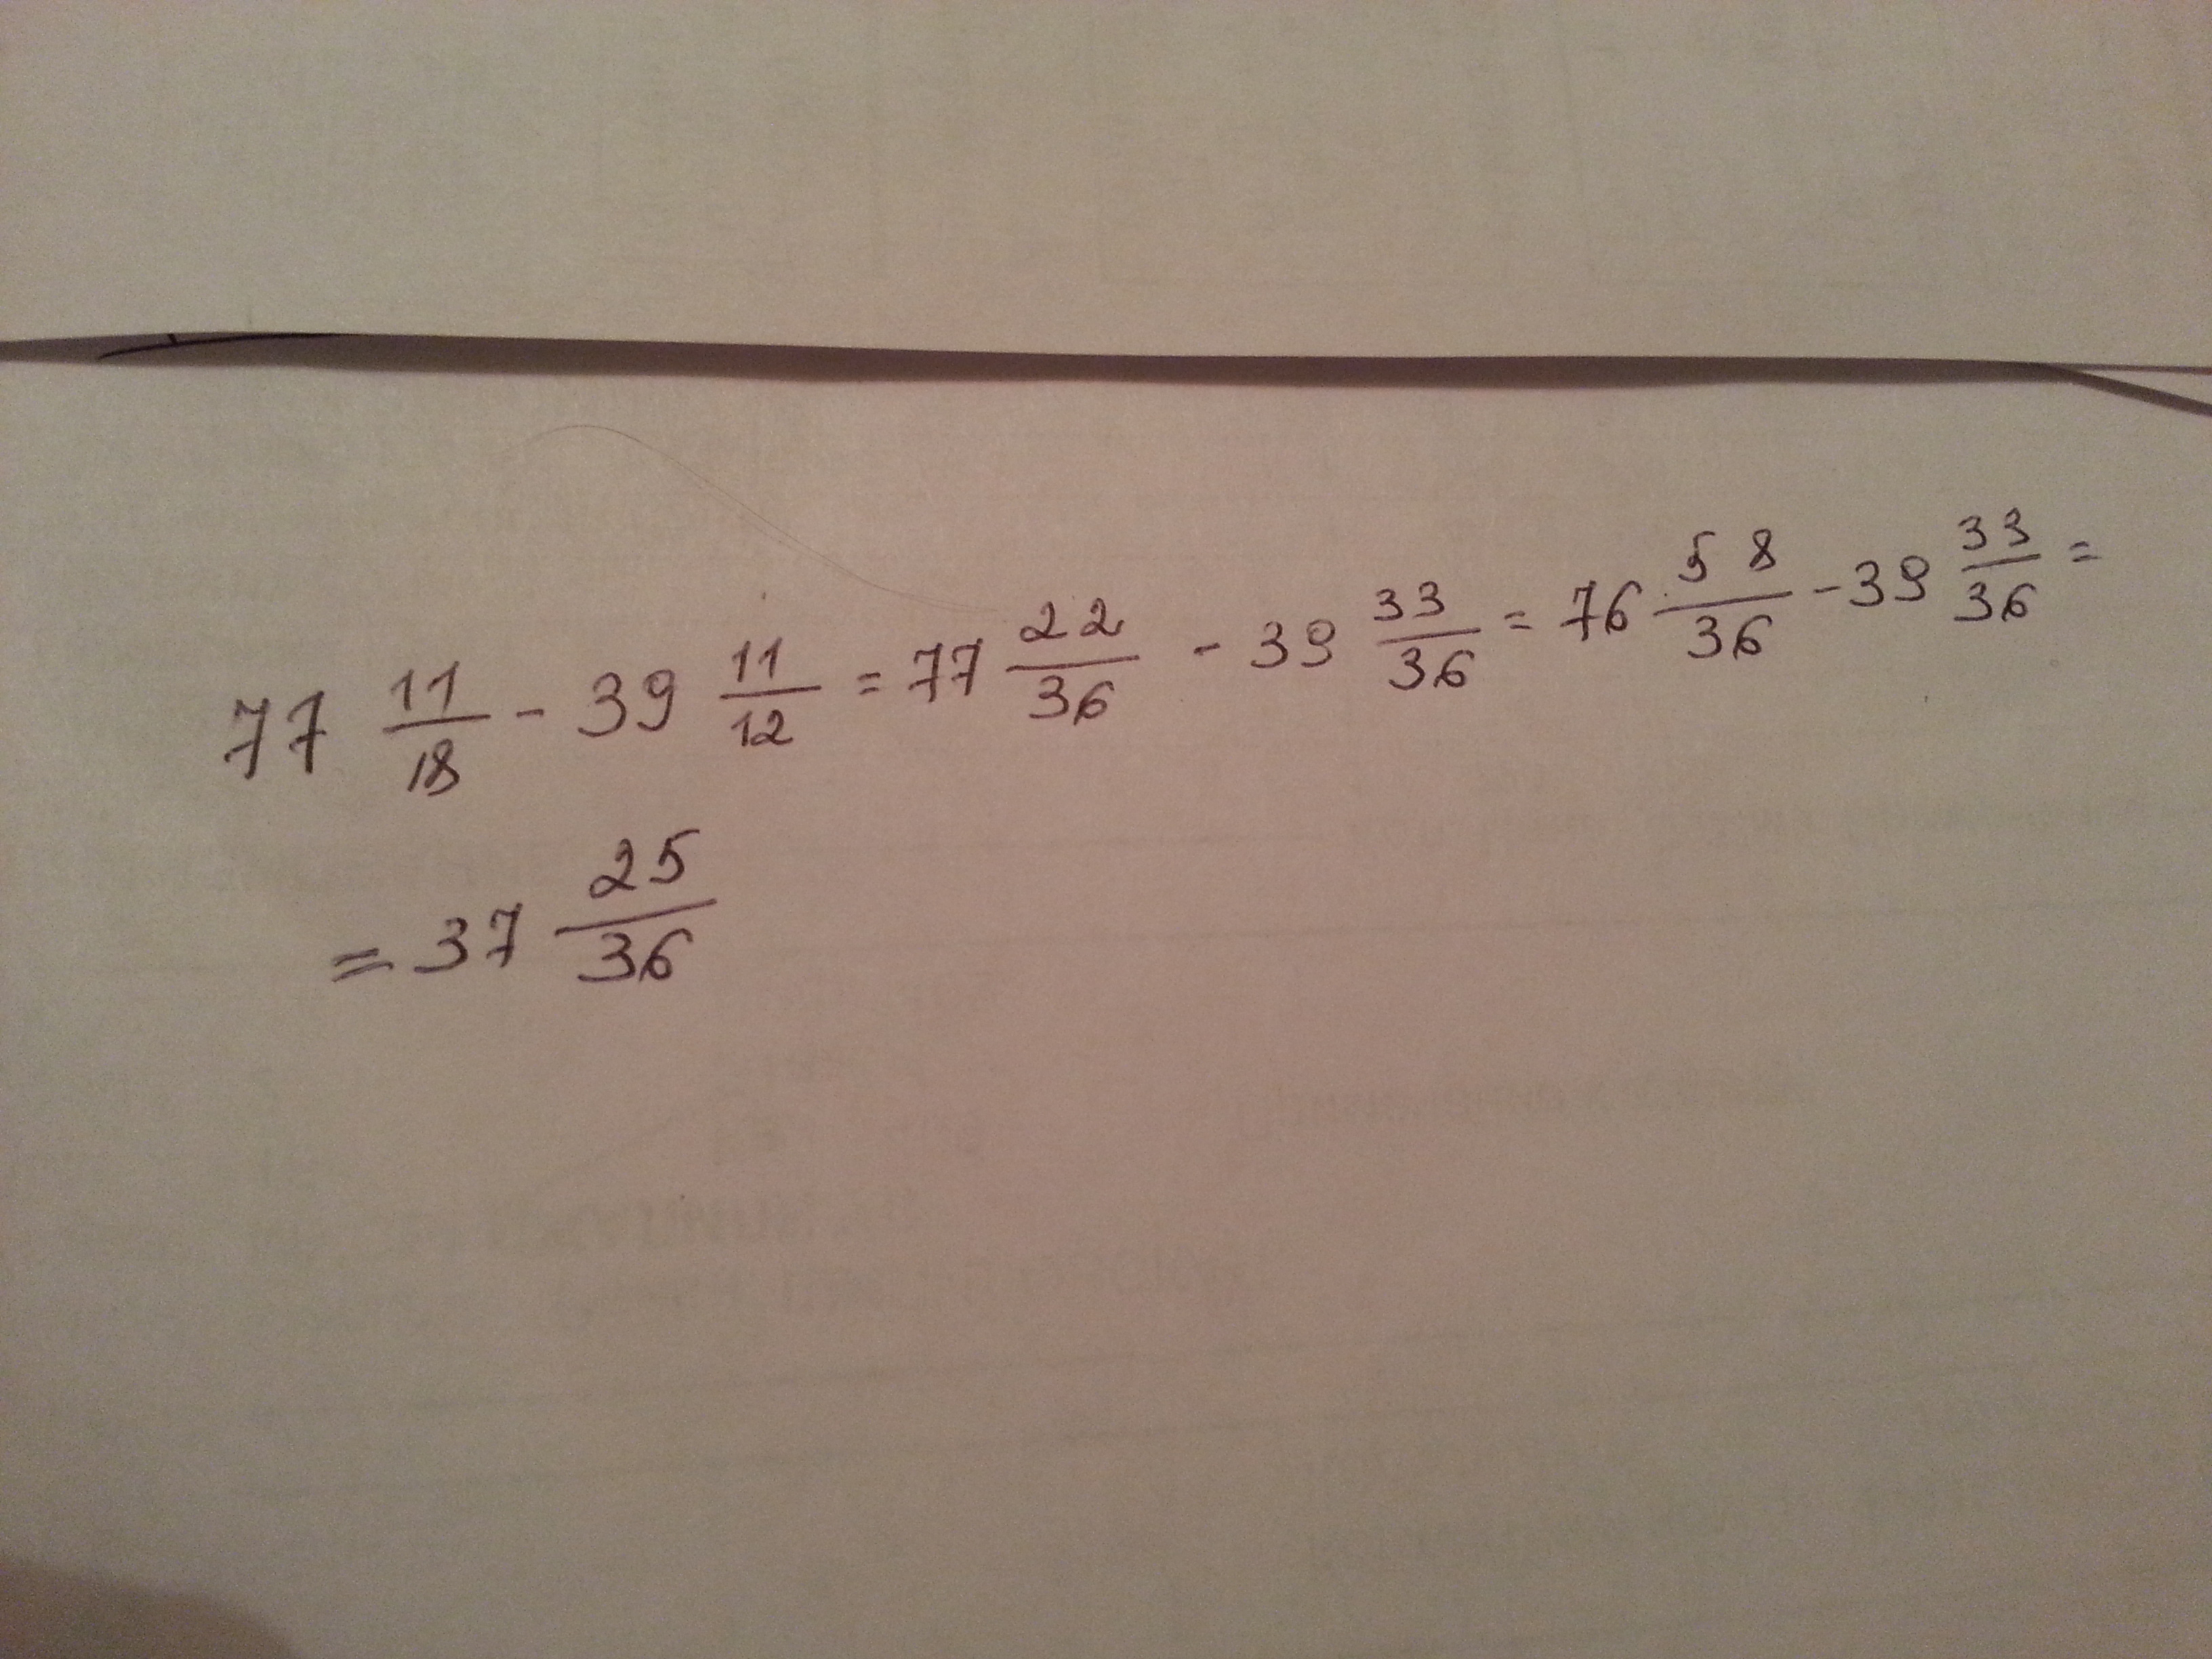 77 11/18 - 39 11/12 = 77 22/36 - 39 33/36 = 76 58/36 - 39 33/36 =
= 37 25/36